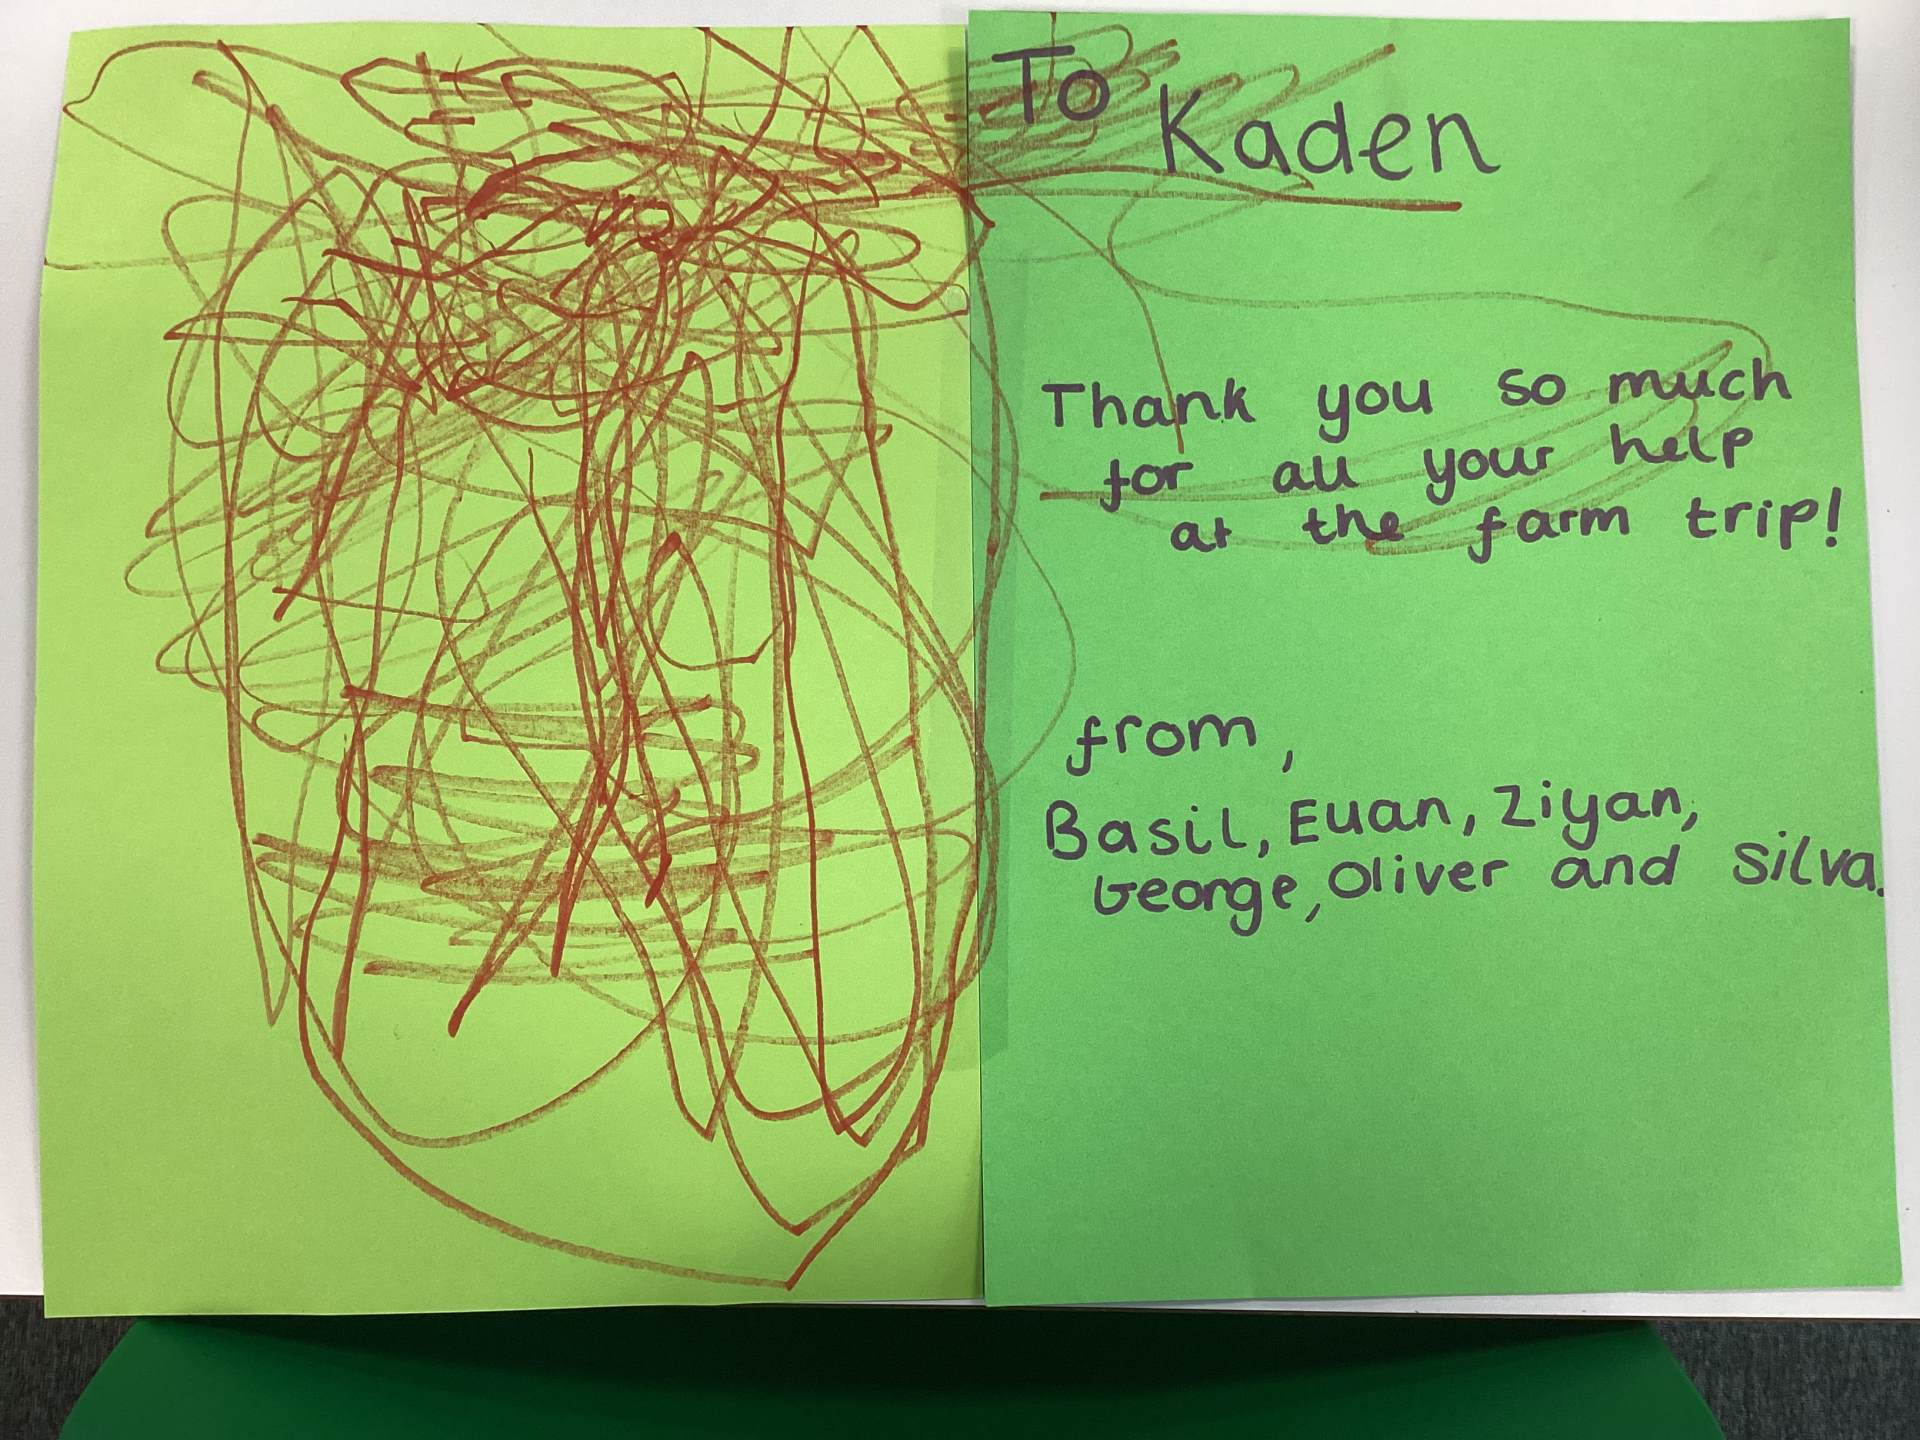 To
Kaden
Thank you so much
for all your help
at the farm trip!
from,
Basil, Euan, Ziyan,
George, Oliver and Silva.